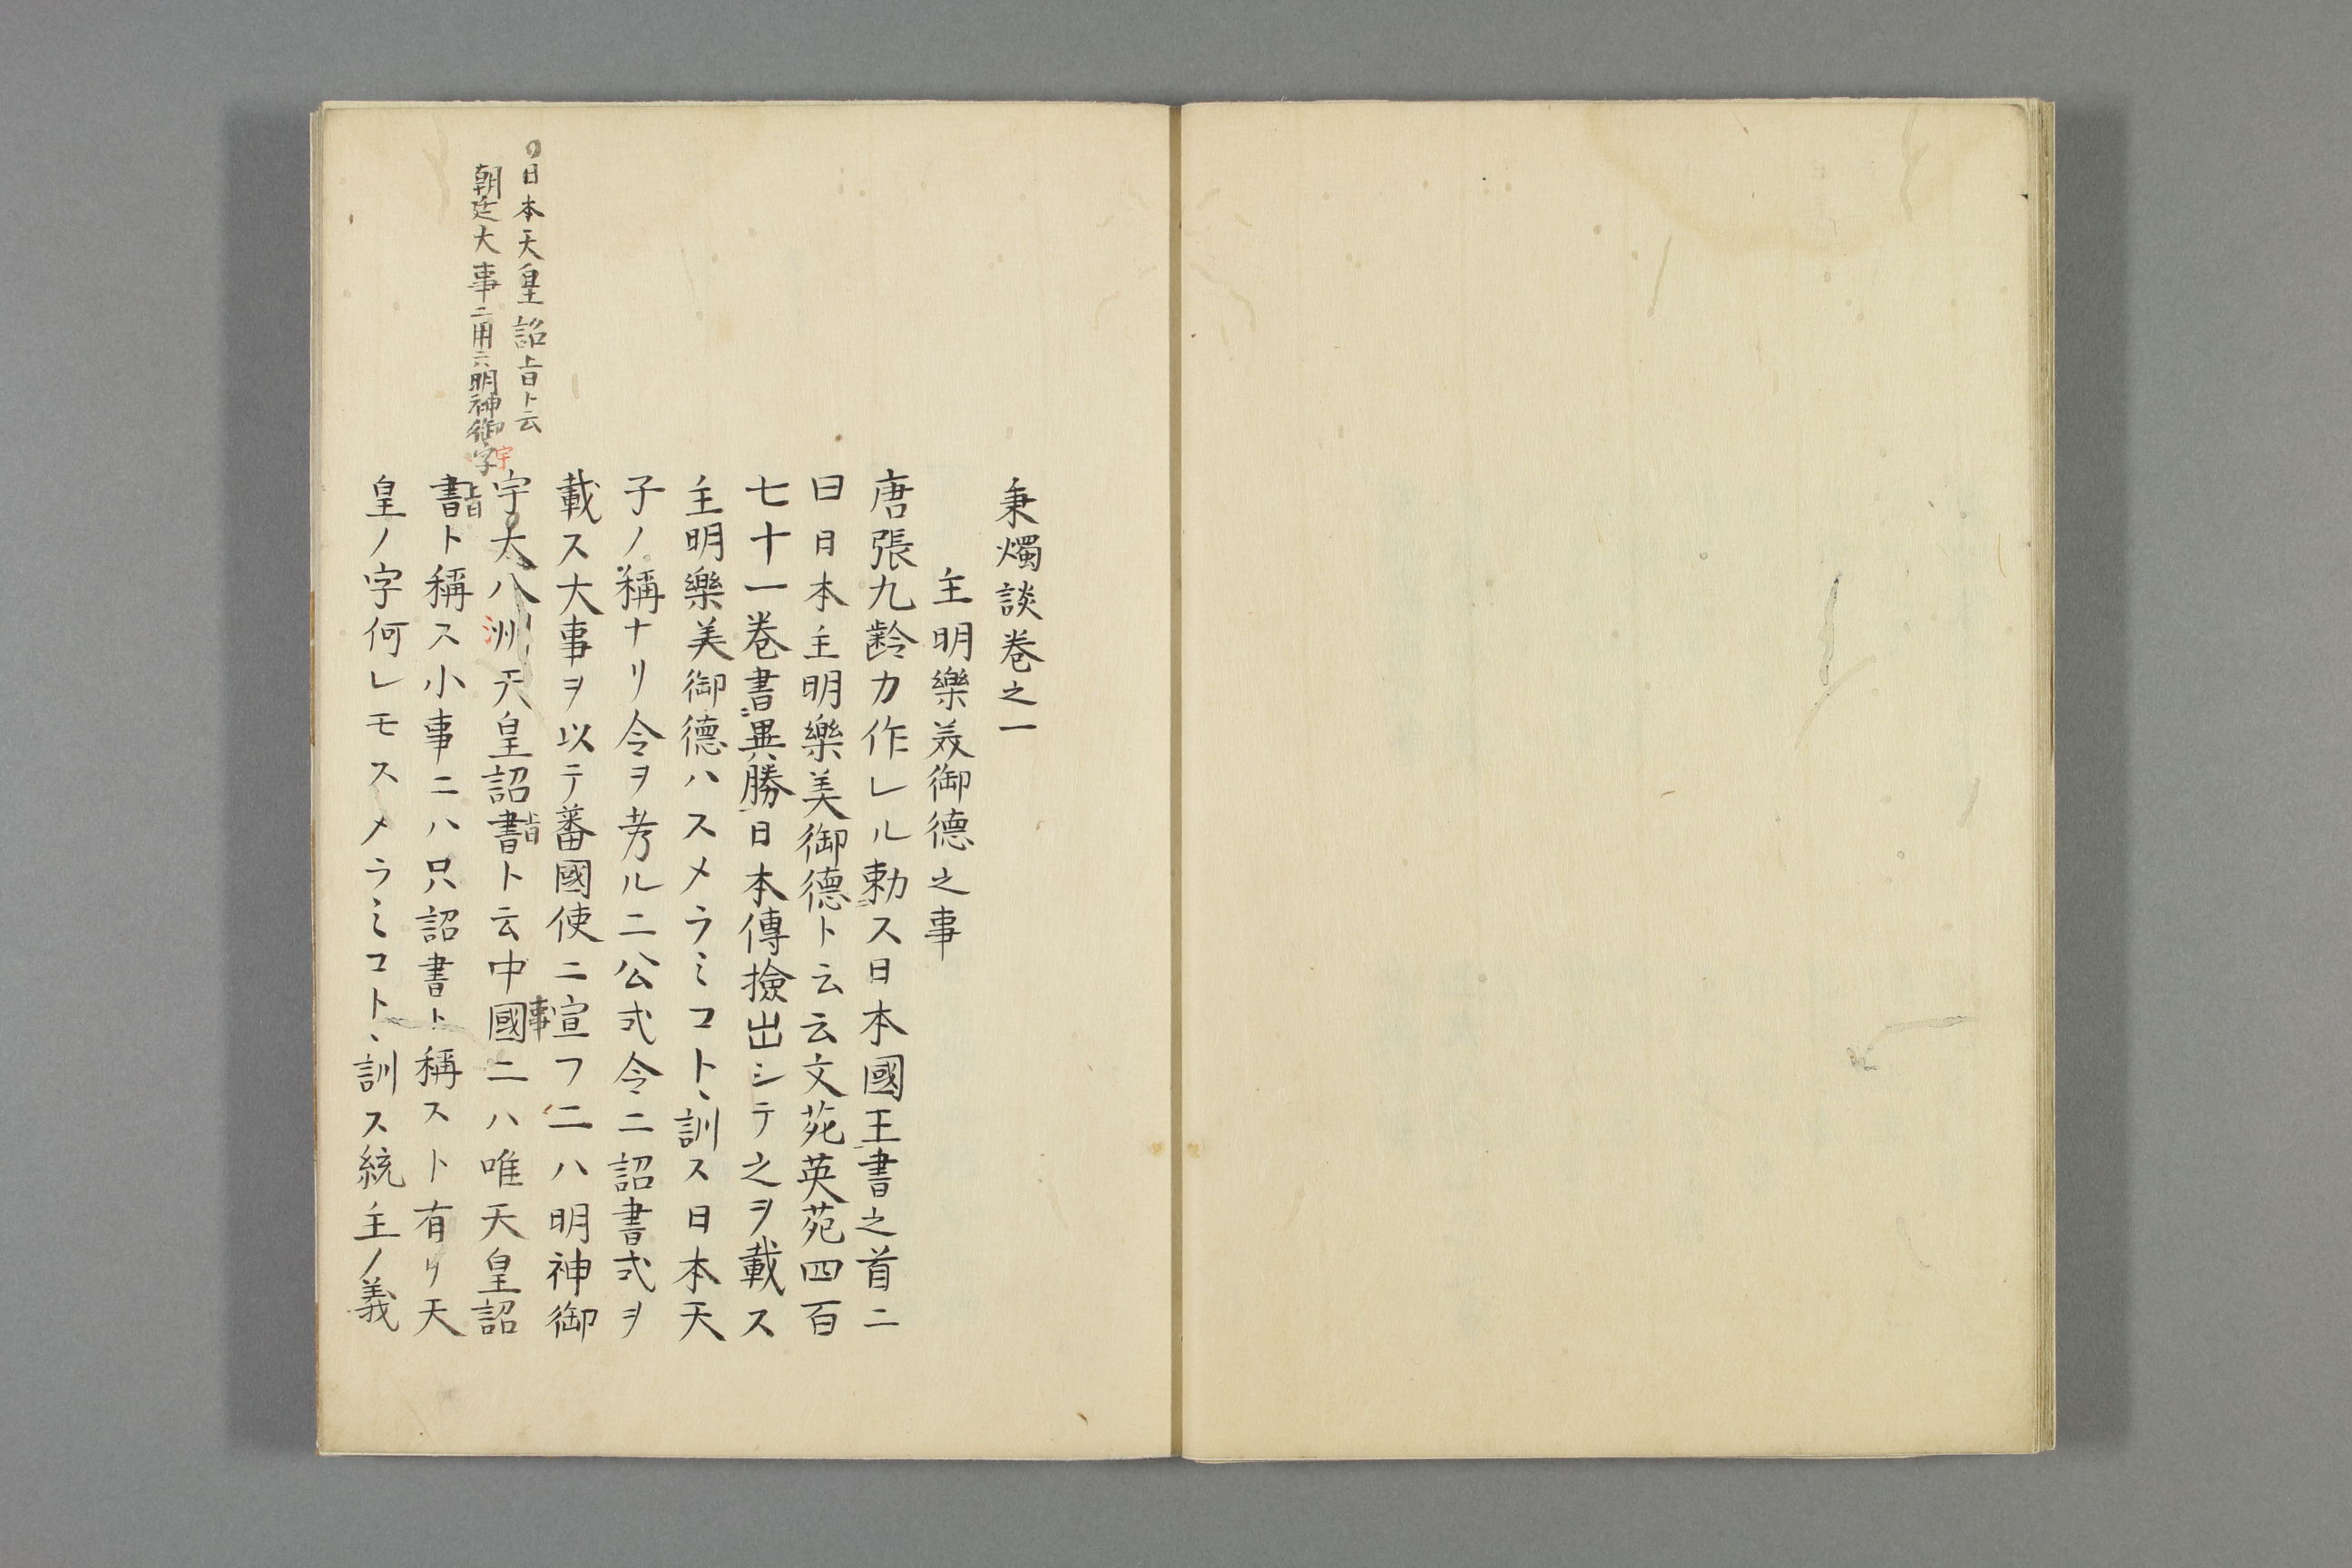 秉燭談巻之一
主明樂美御德之事
唐張九齡カ作レル勅ス日本國王書之首ニ
曰日本主明樂美御德ト云云文苑英苑四百
七十一巻書異勝日本傳撿出シテ之ヲ載ス
主明樂美御德ハスメラミコト、訓ス日本天
子ノ稱ナリ令ヲ考ルニ公式令ニ詔書式ヲ
載ス大事ヲ以テ蕃國使ニ宣フニハ明神御
事
宇大八洲天皇詔書ト云中國ニハ唯天皇詔
旨
書ト稱ス小事ニハ只詔書ト稱スト有リ天
旨
皇ノ字何レモスメラミコト、訓ス統主ノ義
日本天皇詔旨ト云
朝廷大事ニ用ニハ明神御字
宇